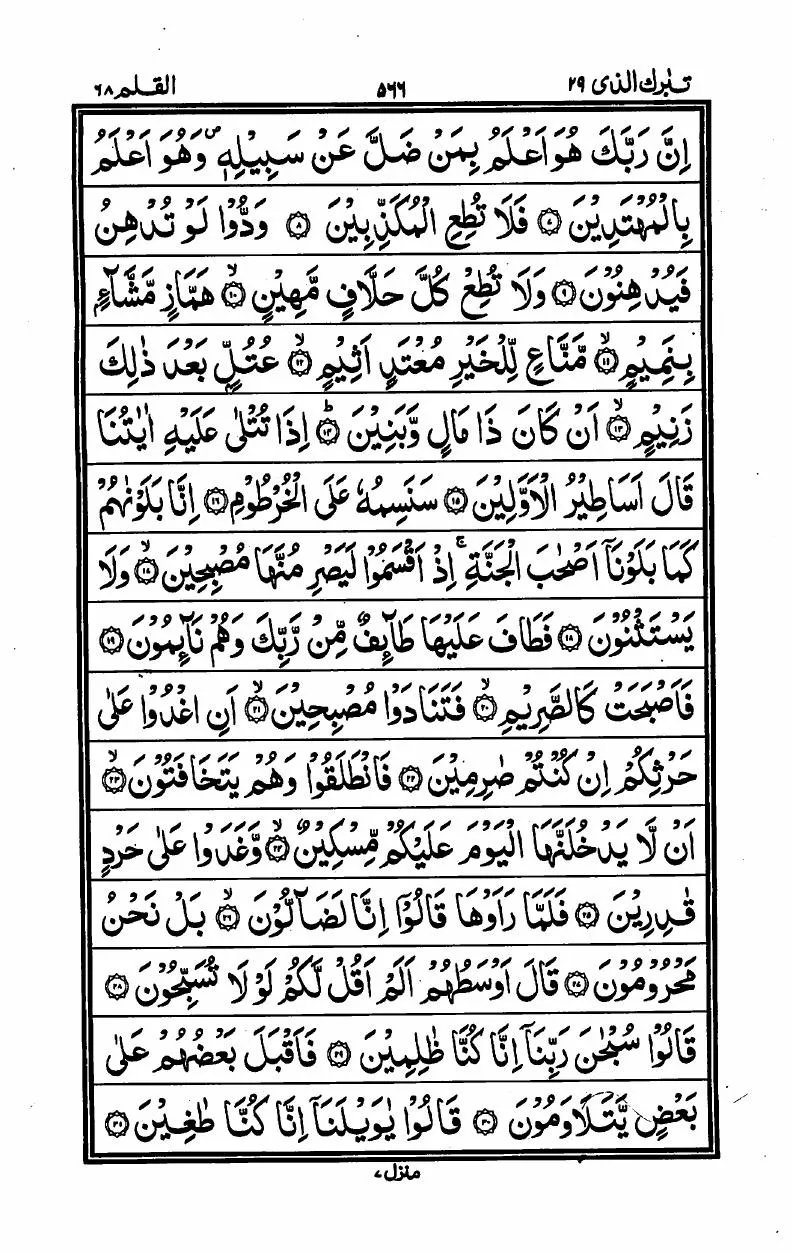 تبٰرك الذى ٢٩
٥٦٦
القلم ٦٨
اِنَّ رَبَّكَ هُوَ اَعْلَمُ بِمَنْ ضَلَّ عَنْ سَبِيْلِهٖ ۪ وَهُوَ اَعْلَمُ
بِالْمُهْتَدِيْنَ ﴿٧﴾ فَلَا تُطِعِ الْمُكَذِّبِيْنَ ﴿٨﴾ وَدُّوْا لَوْ تُدْهِنُ
فَيُدْهِنُوْنَ ﴿٩﴾ وَلَا تُطِعْ كُلَّ حَلَّافٍ مَّهِيْنٍ ۙ﴿١٠﴾ هَمَّازٍ مَّشَّآءٍۭ
بِنَمِيْمٍ ۙ﴿١١﴾ مَّنَّاعٍ لِّلْخَيْرِ مُعْتَدٍ اَثِيْمٍ ۙ﴿١٢﴾ عُتُلٍّۭ بَعْدَ ذٰلِكَ
زَنِيْمٍ ۙ﴿١٣﴾ اَنْ كَانَ ذَا مَالٍ وَّبَنِيْنَ ؕ﴿١٤﴾ اِذَا تُتْلٰى عَلَيْهِ اٰيٰتُنَا
قَالَ اَسَاطِيْرُ الْاَوَّلِيْنَ ﴿١٥﴾ سَنَسِمُهٗ عَلَى الْخُرْطُوْمِ ﴿١٦﴾ اِنَّا بَلَوْنٰهُمْ
كَمَا بَلَوْنَآ اَصْحٰبَ الْجَنَّةِ ۚ اِذْ اَقْسَمُوْا لَيَصْرِمُنَّهَا مُصْبِحِيْنَ ۙ﴿١٧﴾ وَلَا
يَسْتَثْنُوْنَ ﴿١٨﴾ فَطَافَ عَلَيْهَا طَآئِفٌ مِّنْ رَّبِّكَ وَهُمْ نَآئِمُوْنَ ﴿١٩﴾
فَاَصْبَحَتْ كَالصَّرِيْمِ ۙ﴿٢٠﴾ فَتَنَادَوْا مُصْبِحِيْنَ ۙ﴿٢١﴾ اَنِ اغْدُوْا عَلٰى
حَرْثِكُمْ اِنْ كُنْتُمْ صٰرِمِيْنَ ﴿٢٢﴾ فَانْطَلَقُوْا وَهُمْ يَتَخَافَتُوْنَ ۙ﴿٢٣﴾
اَنْ لَّا يَدْخُلَنَّهَا الْيَوْمَ عَلَيْكُمْ مِّسْكِيْنٌ ۙ﴿٢٤﴾ وَّغَدَوْا عَلٰى حَرْدٍ
قٰدِرِيْنَ ﴿٢٥﴾ فَلَمَّا رَاَوْهَا قَالُوْٓا اِنَّا لَضَآلُّوْنَ ۙ﴿٢٦﴾ بَلْ نَحْنُ
مَحْرُوْمُوْنَ ﴿٢٧﴾ قَالَ اَوْسَطُهُمْ اَلَمْ اَقُلْ لَّكُمْ لَوْلَا تُسَبِّحُوْنَ ﴿٢٨﴾
قَالُوْا سُبْحٰنَ رَبِّنَآ اِنَّا كُنَّا ظٰلِمِيْنَ ﴿٢٩﴾ فَاَقْبَلَ بَعْضُهُمْ عَلٰى
بَعْضٍ يَّتَلَاوَمُوْنَ ﴿٣٠﴾ قَالُوْا يٰوَيْلَنَآ اِنَّا كُنَّا طٰغِيْنَ ﴿٣١﴾
منزل ٧